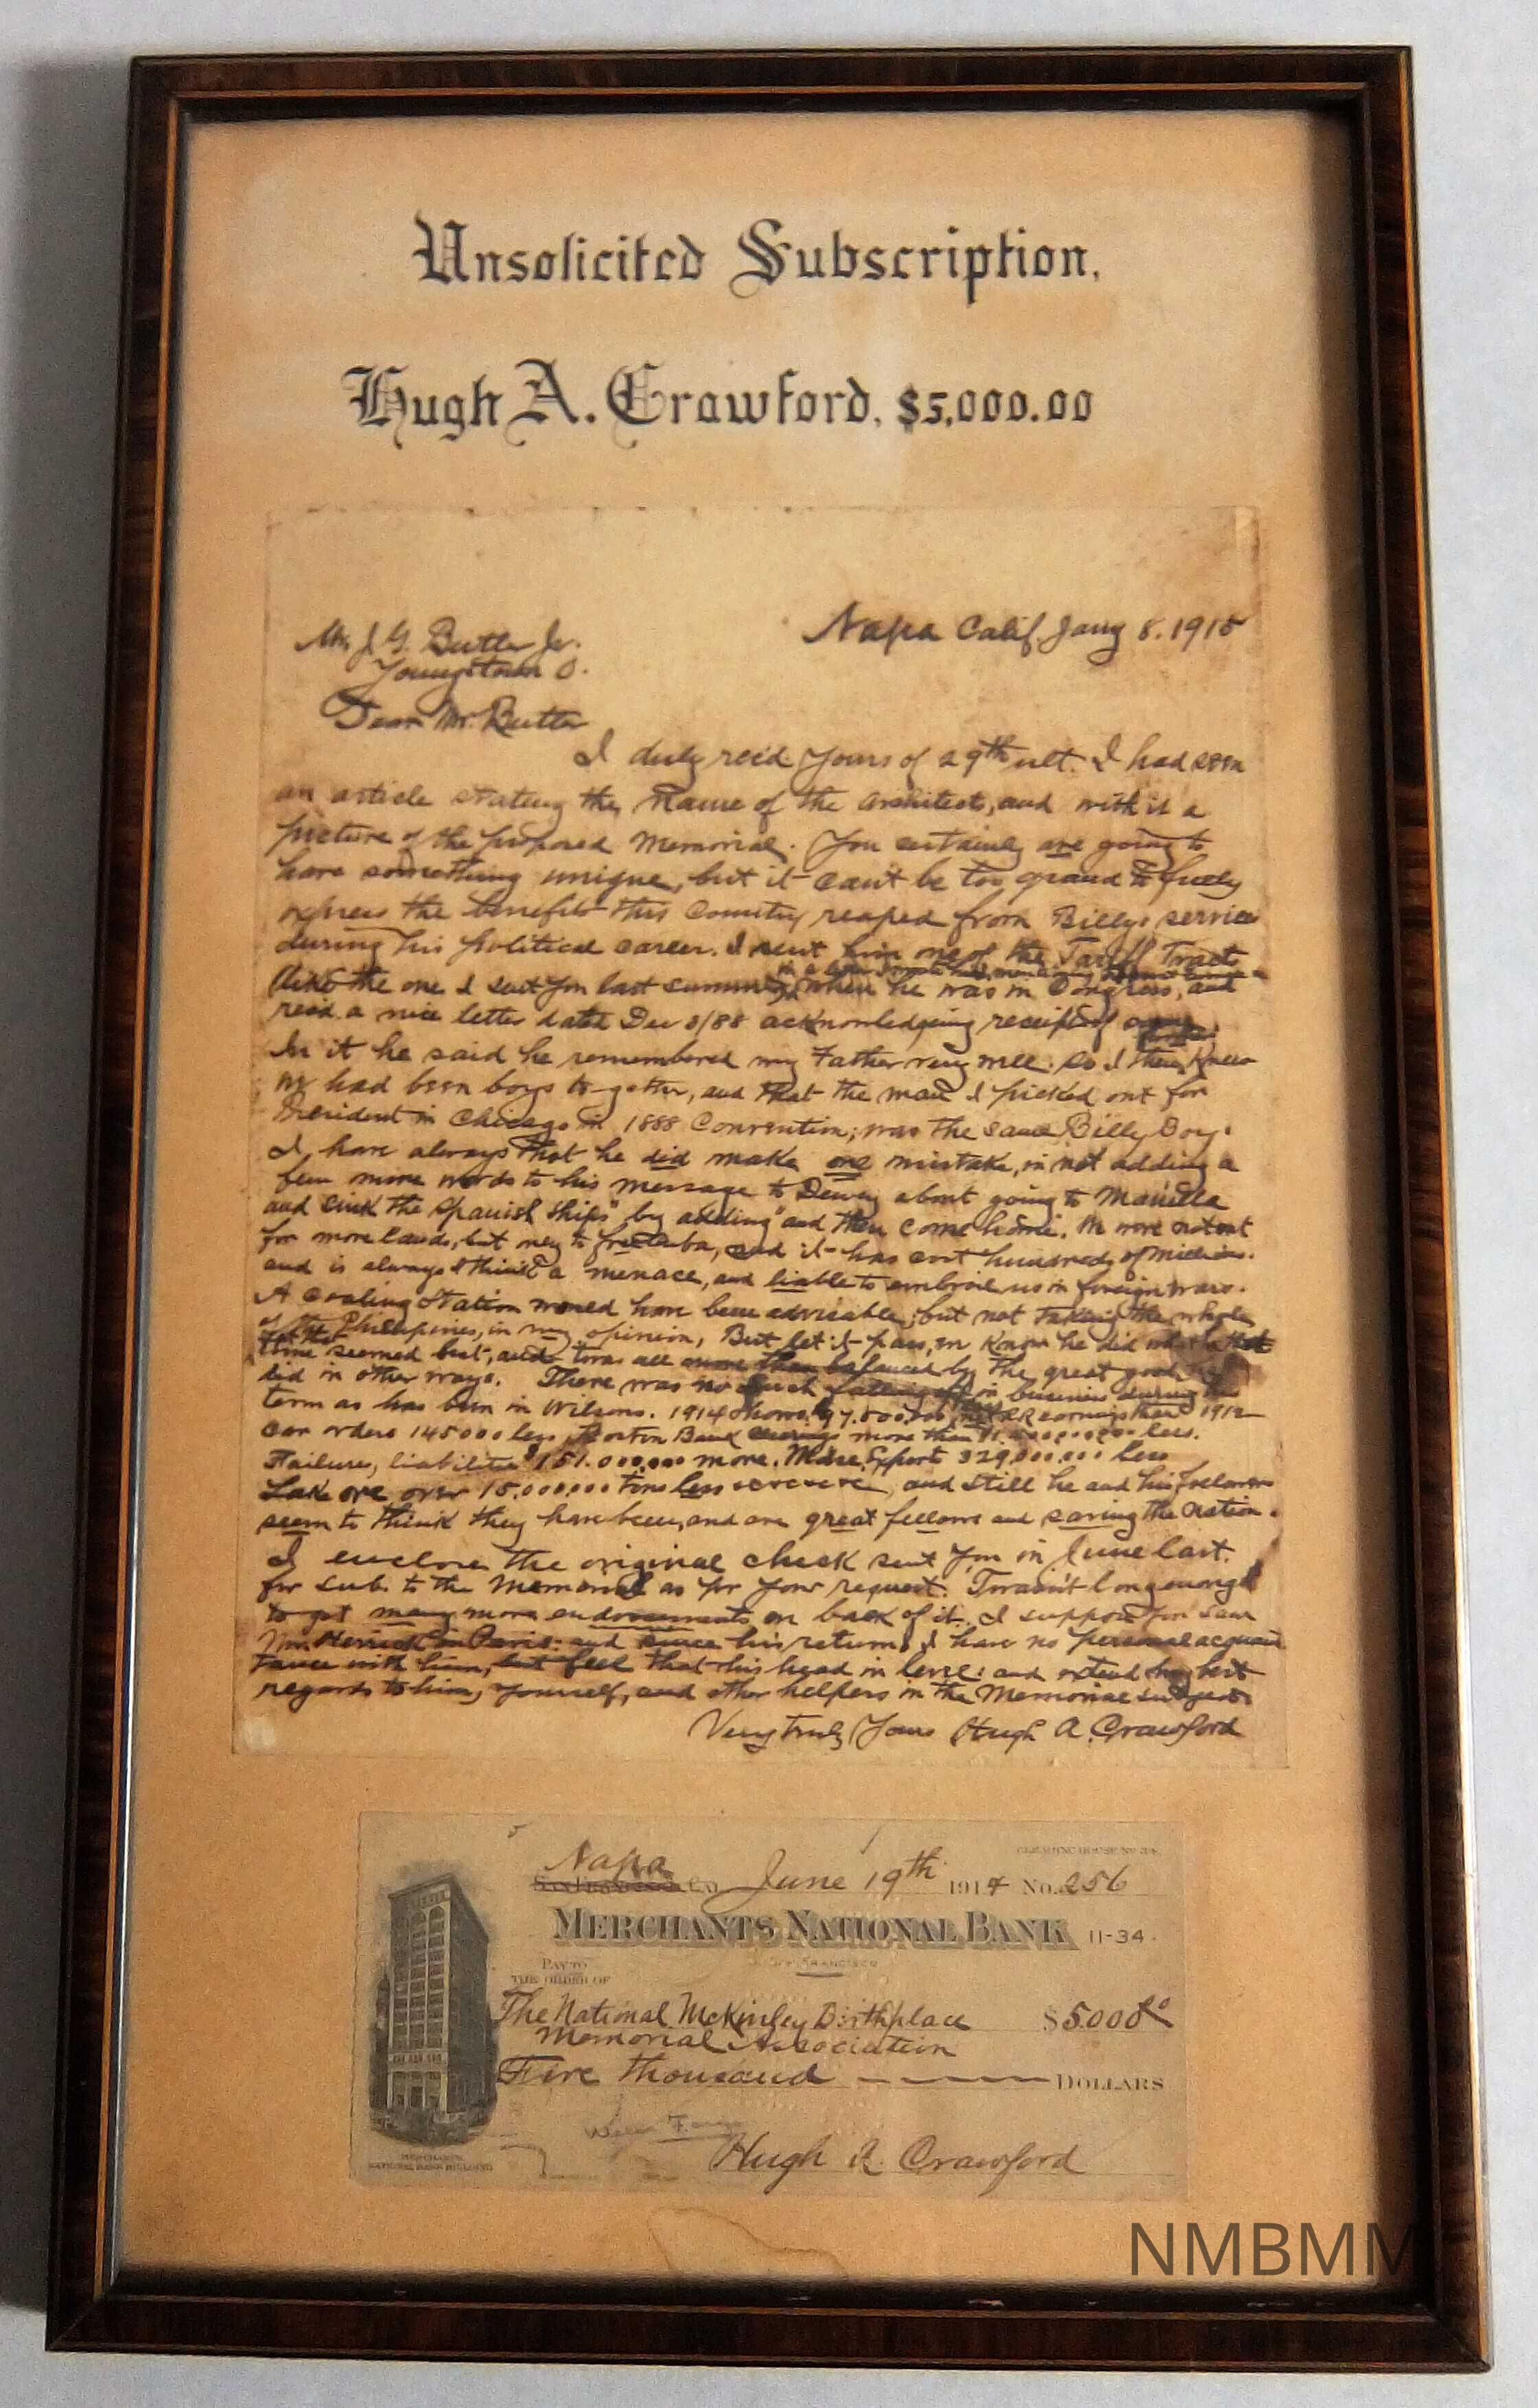 Unsolicited Subscription,
Hugh A. Crawford, $5,000.00
Napa Calif. Jany 8. 1915
Mr. J. G. Butler Jr.
Youngstown O.
Dear Mr. Butler
I duly rec'd yours of 29th ult. I had seen
an article stating the name of the architect, and with it a
picture of the proposed Memorial. You certainly are going to
have something unique, but it can't be too grand to fully
express the benefits this Country reaped from Billys service
during his political career. I sent him one of the Tariff Tract
like the one I sent you last summer, when he was in Congress, and
recd. a nice letter dated Dec 8/88 acknowledging receipt of
In it he said he remembered my Father very well. So I then knew
we had been boys to-gether, and that the man I picked out for
President in Chicago in 1888 Convention, was the same Billy Boy.
I have always that he did make one mistake, in not adding a
few more words to his message to Dewey about going to Manilla
and sink the Spanish ships" by adding "and then come home. We were not out
for more lands, but only to free Cuba, and it has cost hundreds of millions.
and is always I think a menace, and liable to embroil us in foreign wars.
A Coaling Station would have been advisable, but not taking the whole
of the Philippines, in my opinion, But let it pass, we know he did what
at the
time seemed best, and twas all more than balanced by the great good he
did in other ways. There was no such falling off in business during his
term as has been in Wilsons. 1914 shows 97.000.000 RR earnings than 1912
Car orders 145000 less, Boston Bank clearings more than less.
Failures, liabilities $151.000.000 more. Mdse. Export 329,000.000 less
Lake ore over 15.000.000 tons less and still he and his followers
seem to think they have been, and are great fellows and saving the nation.
I enclose the original check sent you in June last.
for sub. to the Memorial as per your request. Twasn't long enough
to get many more endorsements on back of it. I suppose you saw
Mr. Herrick in Paris. and since his return. I have no personal acquain
tance with him, but feel that his head is level: and extend my best
regards to him, yourself, and other helpers in the Memorial subject.
Very truly Yours Hugh A. Crawford
CLEARING HOUSE NO.
Napa June 19th 1914 No. 256
MERCHANTS NATIONAL BANK 11-34
PAY TO
THE ORDER OF
The National McKinley Birthplace $5000.00
Memorial Association
Five thousand DOLLARS
Hugh A. Crawford
MERCHANTS
NATIONAL BANK BUILDING
NMBMM